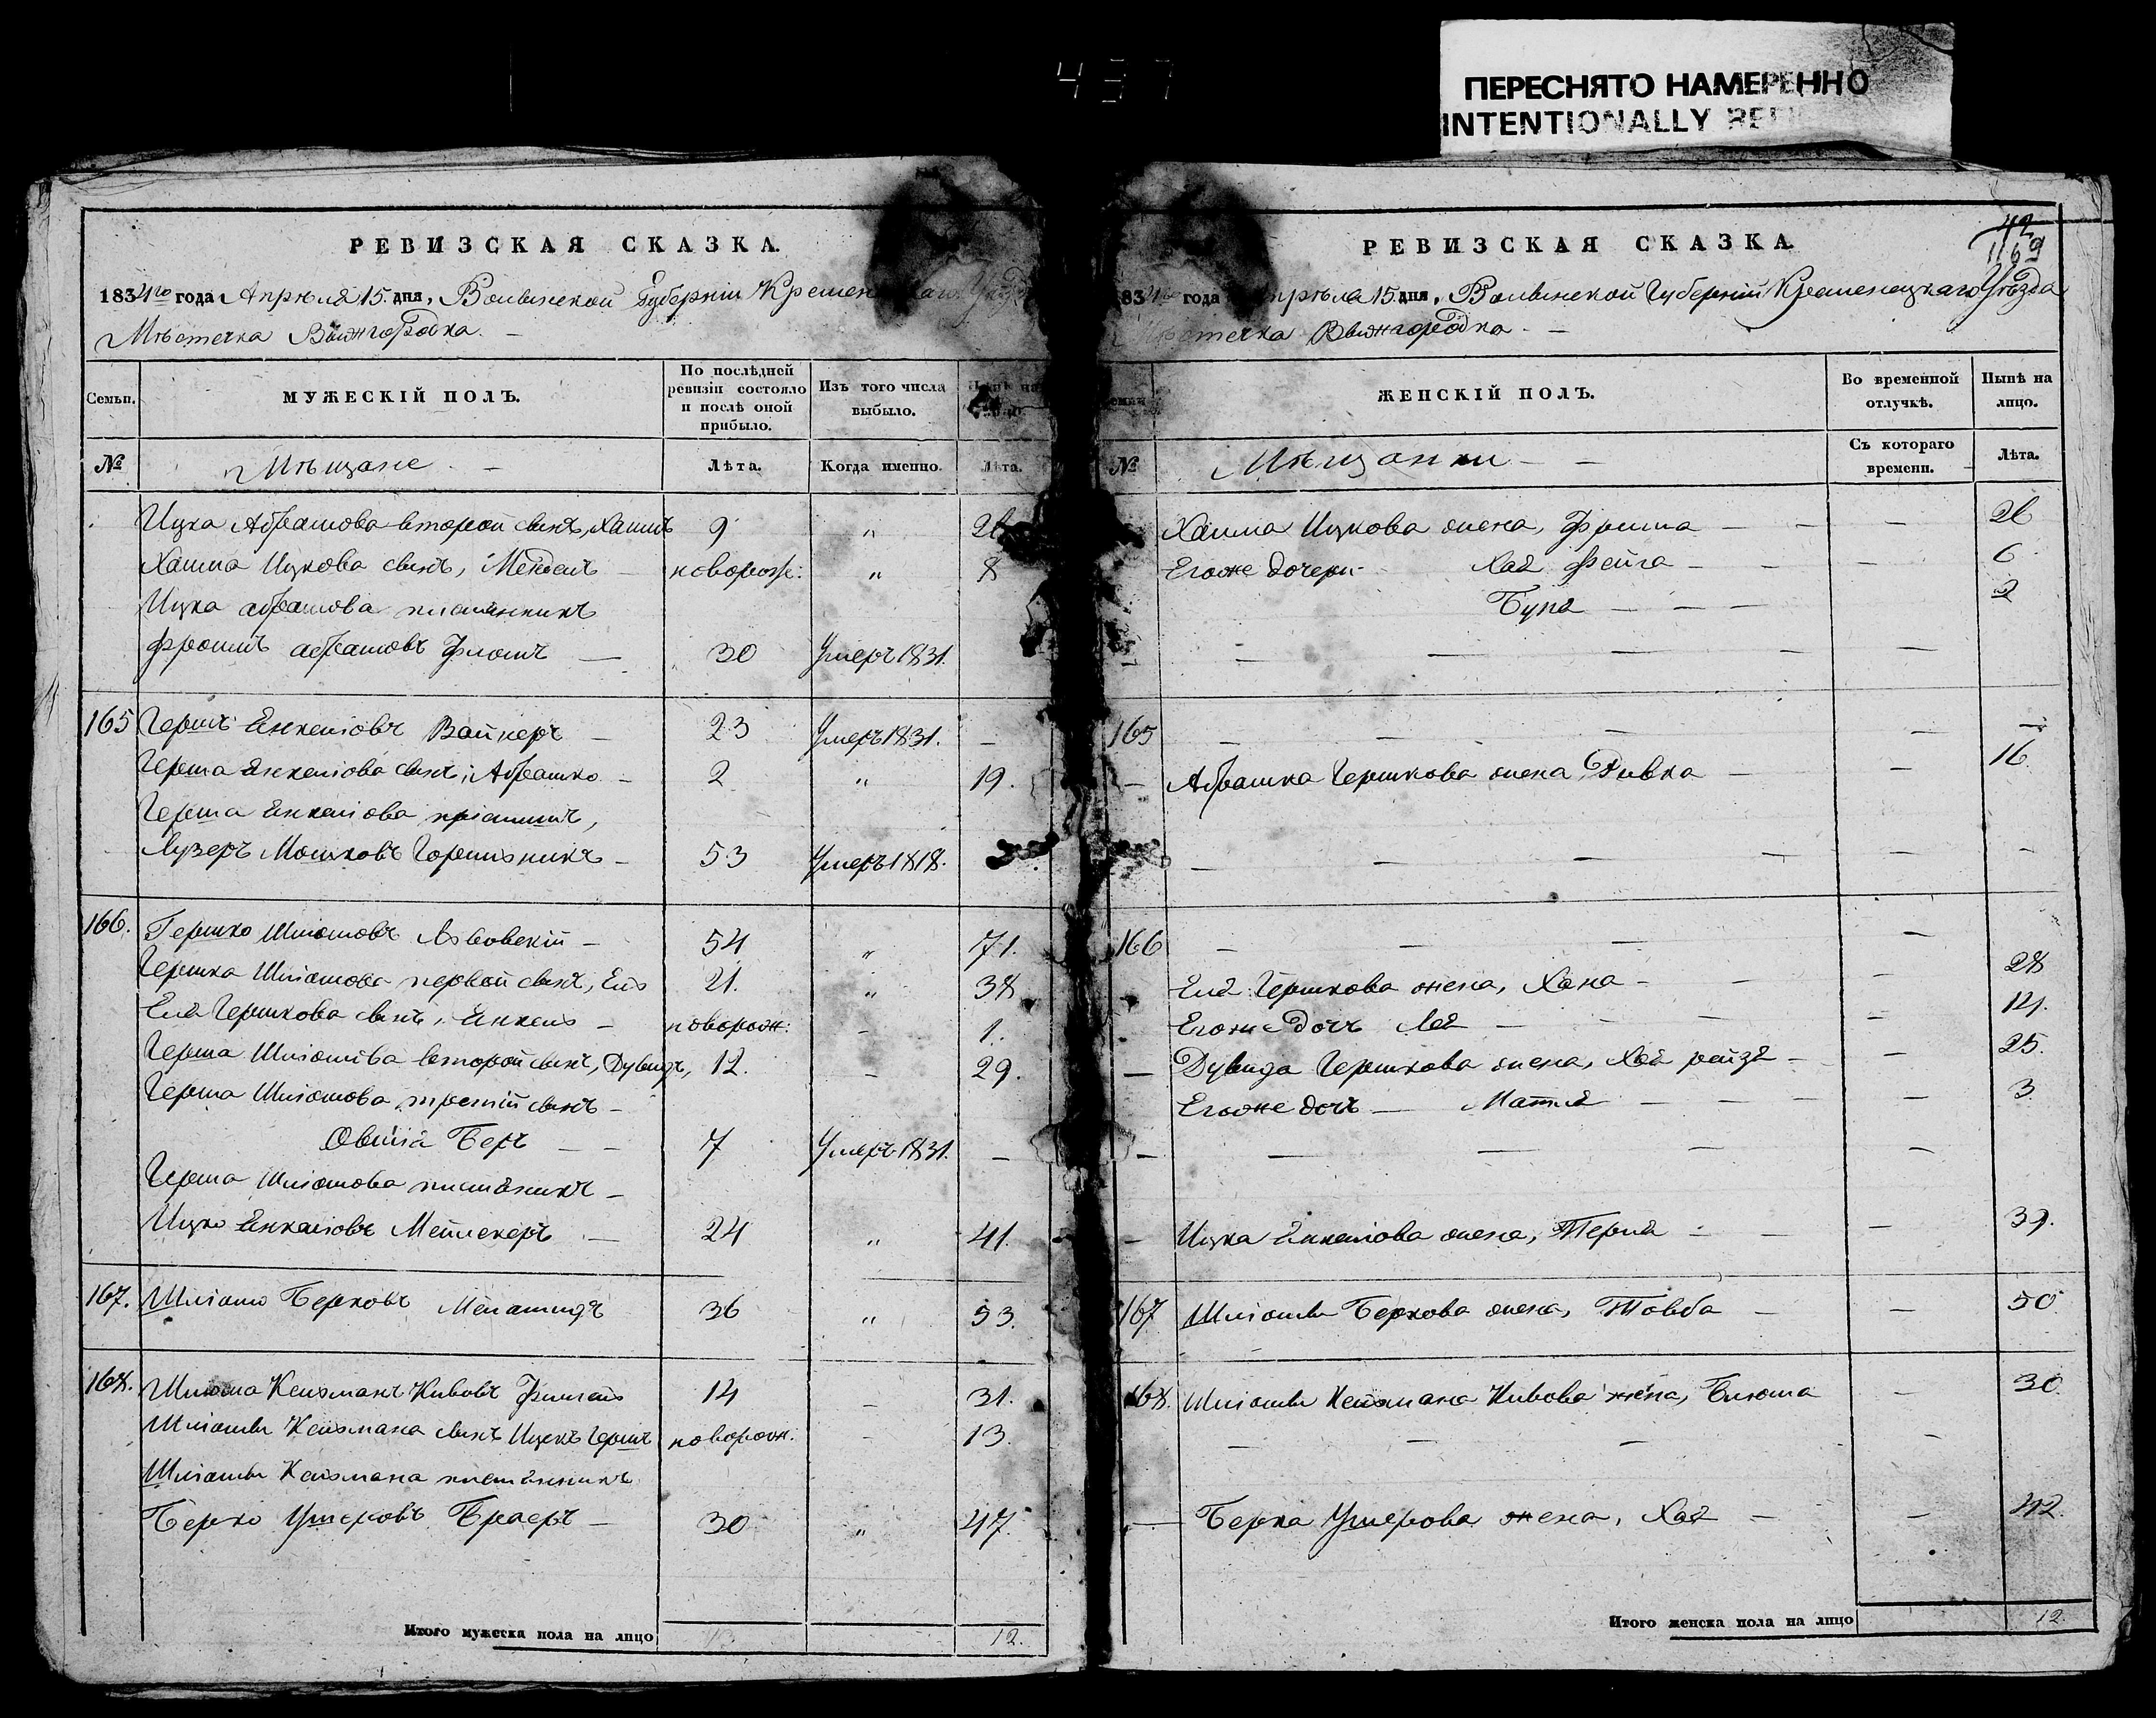 437
ПЕРЕСНЯТО НАМЕРЕННО
INTENTIONALLY
РЕВИЗСКАЯ СКАЗКА.
1834го года Апрѣля 15. дня, Волынской Губерніи
Мѣстечка Вышгородка.
Семьи. МУЖЕСКІЙ ПОЛЪ. По послѣдней ревизіи состояло и послѣ оной прибыло. Изъ того числа выбыло.
№ Мѣщане Лѣта. Когда именно. Лѣта.
Ицка Абрамова второй сынъ, Хаимъ 9 "
Хаима Ицкова сынъ, Мендель новорож: " 8
Ицка абрамова племянникъ
Фроимъ абрамовъ 30 Умеръ 1831.
165 Гершъ Енкелювъ Вайнеръ 23 Умеръ 1831.
Герша Енкелюва сынъ, Абрашко 2 " 19.
Герша Енкелюва
Лузеръ Мошковъ 53 Умеръ 1818.
166. Гершко Шлiомовъ 54 " 71.
Гершка Шлiомова первой сынъ, Ель 21. " 38
Еля Гершкова сынъ, Енкель новорож: 1.
Герша Шлiомова второй сынъ, Дувидъ, 12. 29.
Герша Шлiомова третій сынъ
Беръ 7 Умеръ 1831.
Герша Шлiомова племяникъ
Ицко Енкелювъ 24 " 41.
167. Шлiома Берковъ 36 " 53.
168. Шлiома Кельманъ Кивовъ 14 31.
Шлiомы Кельмана сынъ Ицекъ Гершъ новорож: 13.
Шлiомы Кельмана племянникъ
Берко Ушеровъ Браеръ 30 " 47.
Итого мужеска пола на лицо 12.
42
1169
РЕВИЗСКАЯ СКАЗКА.
года Апрѣля 15 дня, Волынской Губерніи Кременецкаго Уѣзда
Мѣстечка Вышгородка.
ЖЕНСКІЙ ПОЛЪ. Во временной отлучкѣ. Нынѣ на лицо.
№ Мѣщанки Съ котораго времени. Лѣта.
Хаима Ицкова жена, Фрима 26
Егоже дочери Хая Фейга 6
Бупа 2
165
Абрашка Гершкова жена Ривка 16.
166
Еля Гершкова жена, Хана 28
Егоже дочь Лея
Дувида Гершкова жена, Хая рейзя 25.
Егоже дочь Матля 3.
Ицка Енкелюва жена, Перля
167 Шлiомы Беркова жена, Товба 50
168. Шлiомы Кельмана Кивова жена, Блюма 30
Берка Ушерова жена, Хая 42.
Итого женска пола на лицо 12